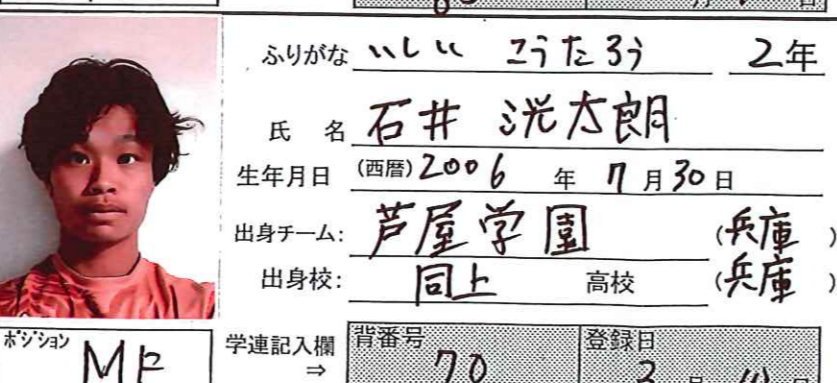 ふりがな いしい こうたろう 2年
氏 名 石井 洸太朗
生年月日 (西暦) 2006 年 7月30日
出身チーム: 芦屋学園 (兵庫)
出身校: 同上 高校 (兵庫)
ポジション MF 学連記入欄 ⇒ 背番号 70 登録日 3月 日